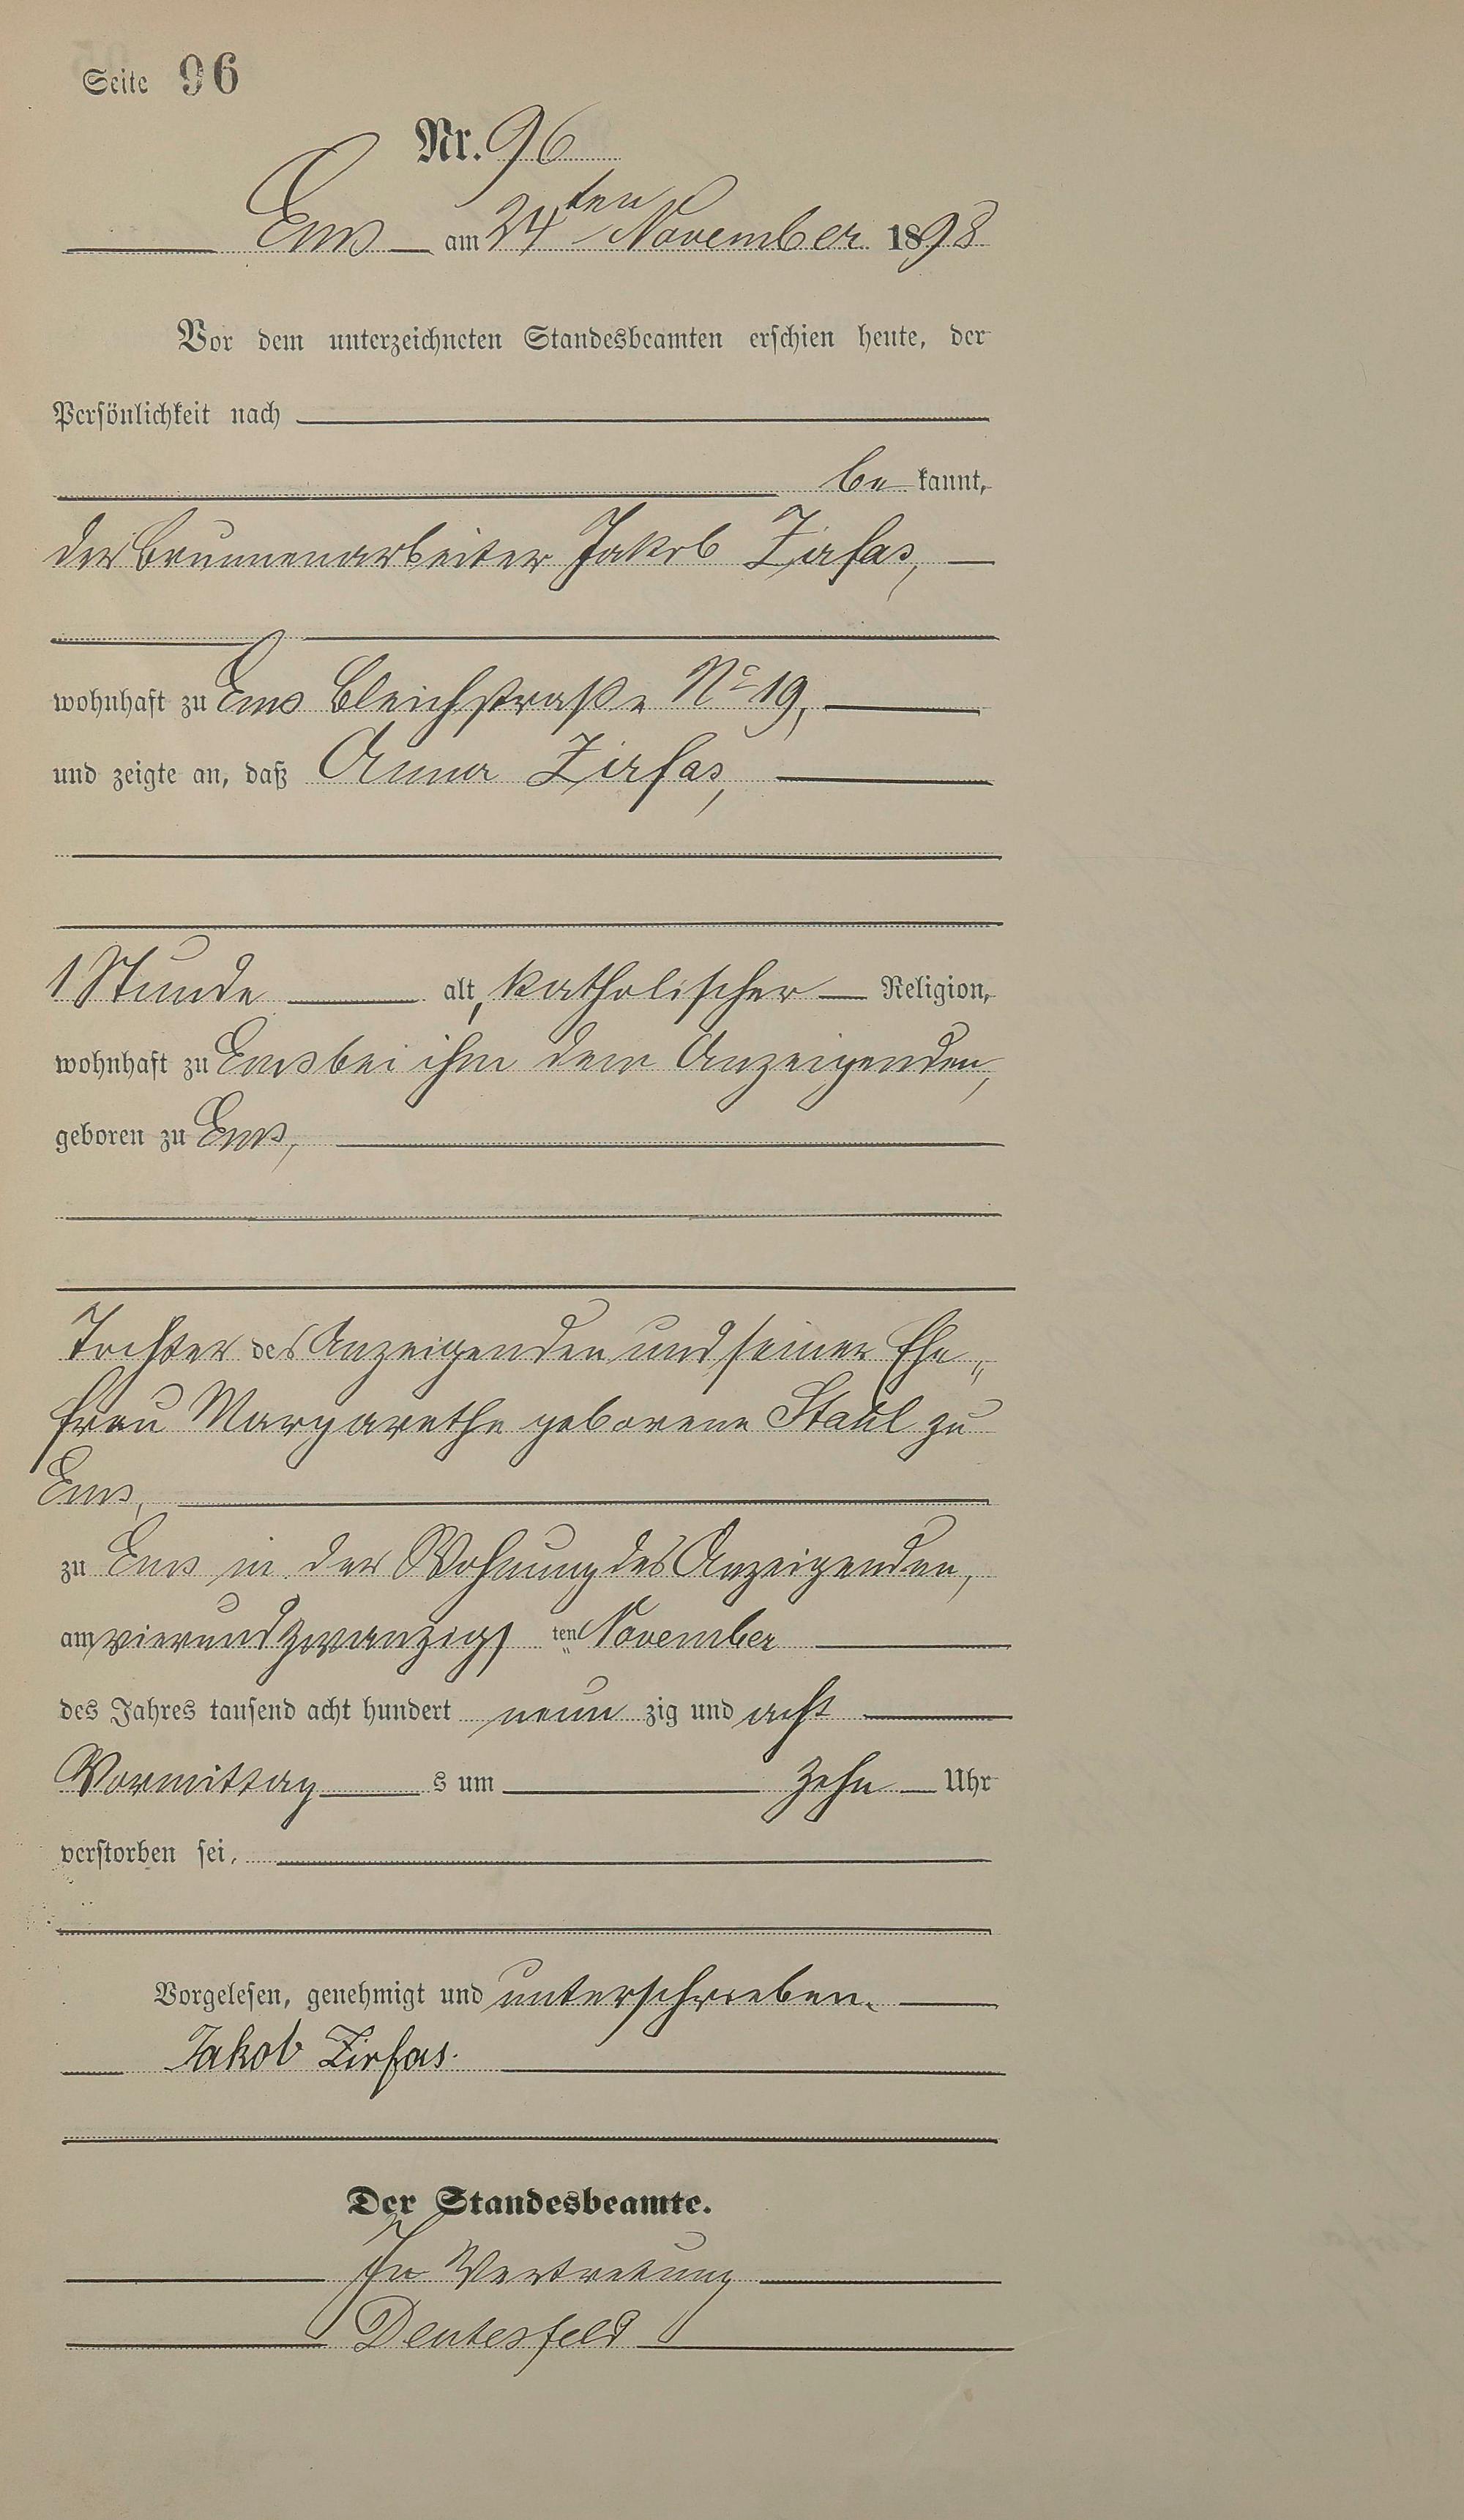 Seite 96
Nr. 96
Ems am 24ten November 1898
Vor dem unterzeichneten Standesbeamten erschien heute, der
Persönlichkeit nach
be kannt,
der Brunnenarbeiter Jakob Zirfas,
wohnhaft zu Ems Bleichstraße No 19,
und zeigte an, daß Anna Zirfas,
1 Stunde alt, katholischer Religion,
wohnhaft zu Ems bei ihm dem Anzeigenden,
geboren zu Ems,
Tochter des Anzeigenden und seiner Ehe„
frau Margarethe geborene Stahl zu
Ems,
zu Ems in der Wohnung des Anzeigenden,
am vierundzwanzigs ten November
des Jahres tausend acht hundert neun zig und acht
Vormittag s um zehn Uhr
verstorben sei,
Vorgelesen, genehmigt und unterschrieben.
Jakob Zirfas.
Der Standesbeamte.
In Vertretung
Deutesfeld